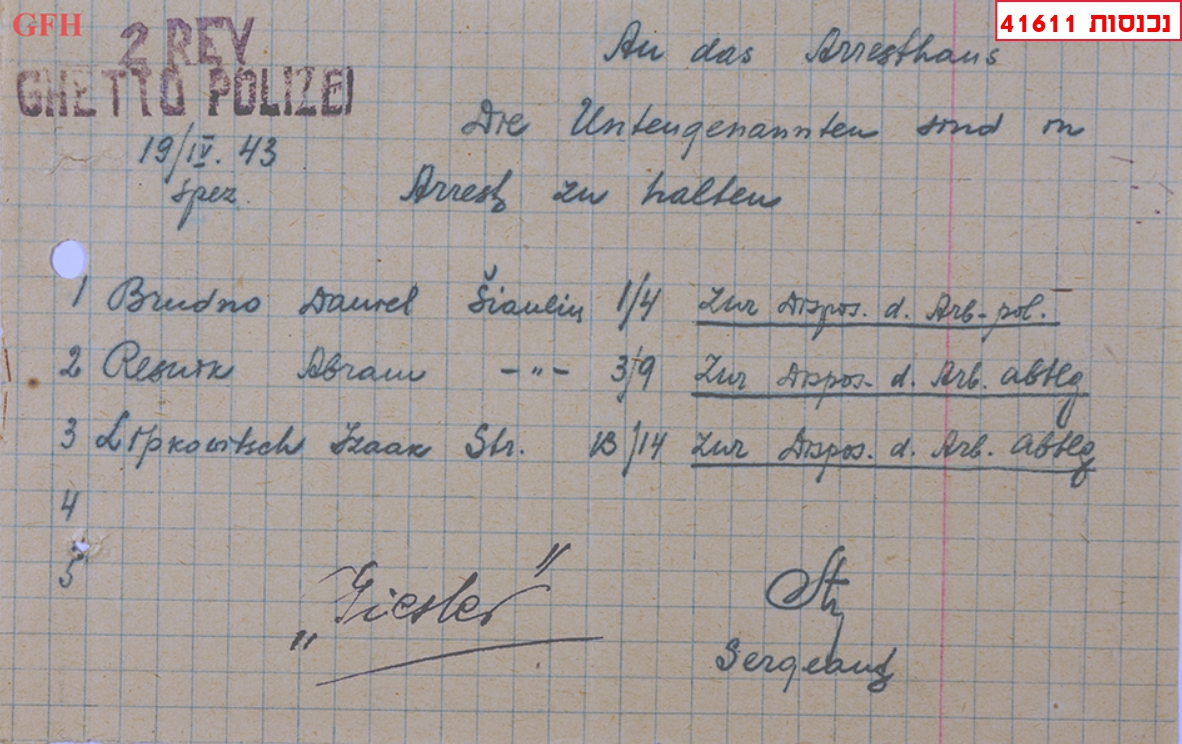 GFH
נכנסות 41611
2 REV
GHETTO POLIZEI
19/IV. 43
spez.
An das Arresthaus
Die Untengenannten sind in
Arrest zu halten
1 Brudno Daniel Šiauliu 1/4 Zur Dispos. d. Arb-pol.
2 Resnik Abram -"- 3/9 Zur Dispos. d. Arb. abtlg
3 Lipkowitsch Izaak Str. 13/14 Zur Dispos. d. Arb. abtlg
4
5
Sergeant